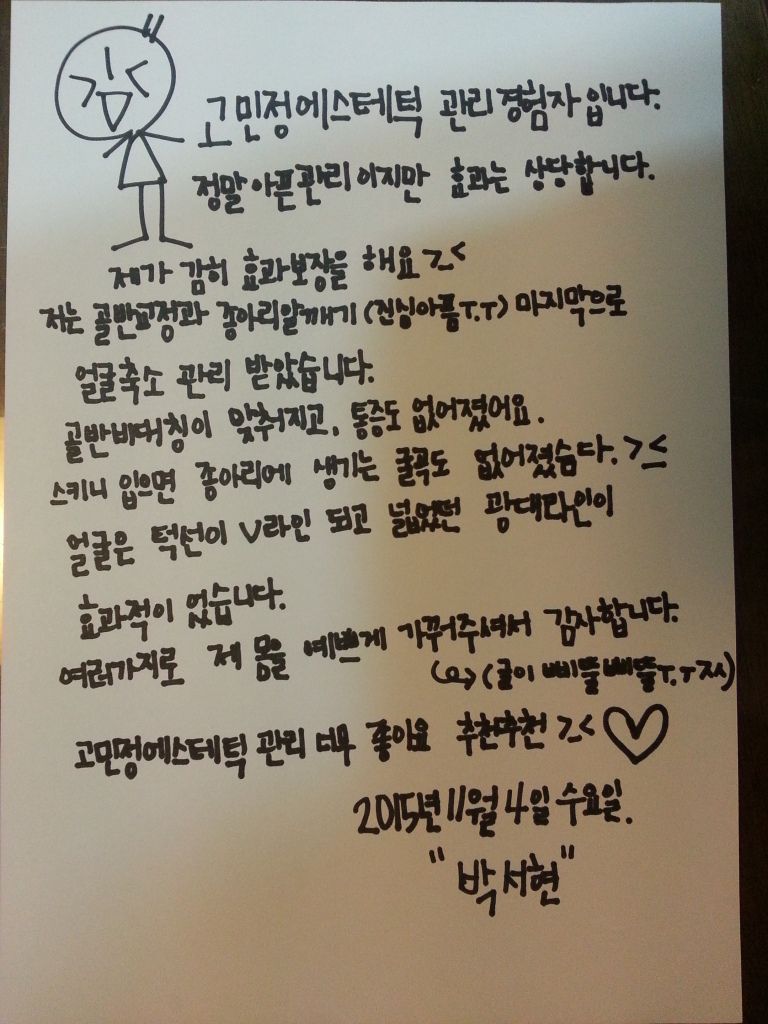 고민정에스테틱 관리경험자입니다.
정말아픈관리이지만 효과는 상당합니다.
제가 감히 효과보장을 해요 >_<
저는 골반교정과 종아리알깨기(진심아픔T.T) 마지막으로
얼굴축소 관리 받았습니다.
골반비대칭이 맞춰지고, 통증도 없어졌어요.
스키니 입으면 종아리에 생기는 굴곡도 없어졌슴다. >_<
얼굴은 턱선이 V라인 되고 넓었던 광대라인이
효과적이 었습니다.
여러가지로 제 몸을 예쁘게 가꿔주셔서 감사합니다.
(글이 삐뚤삐뚤T.T ㅈㅅ)
고민정에스테틱 관리 너무 좋아요 추천추천 >_< ♡
2015년 11월 4일 수요일.
"박서현"